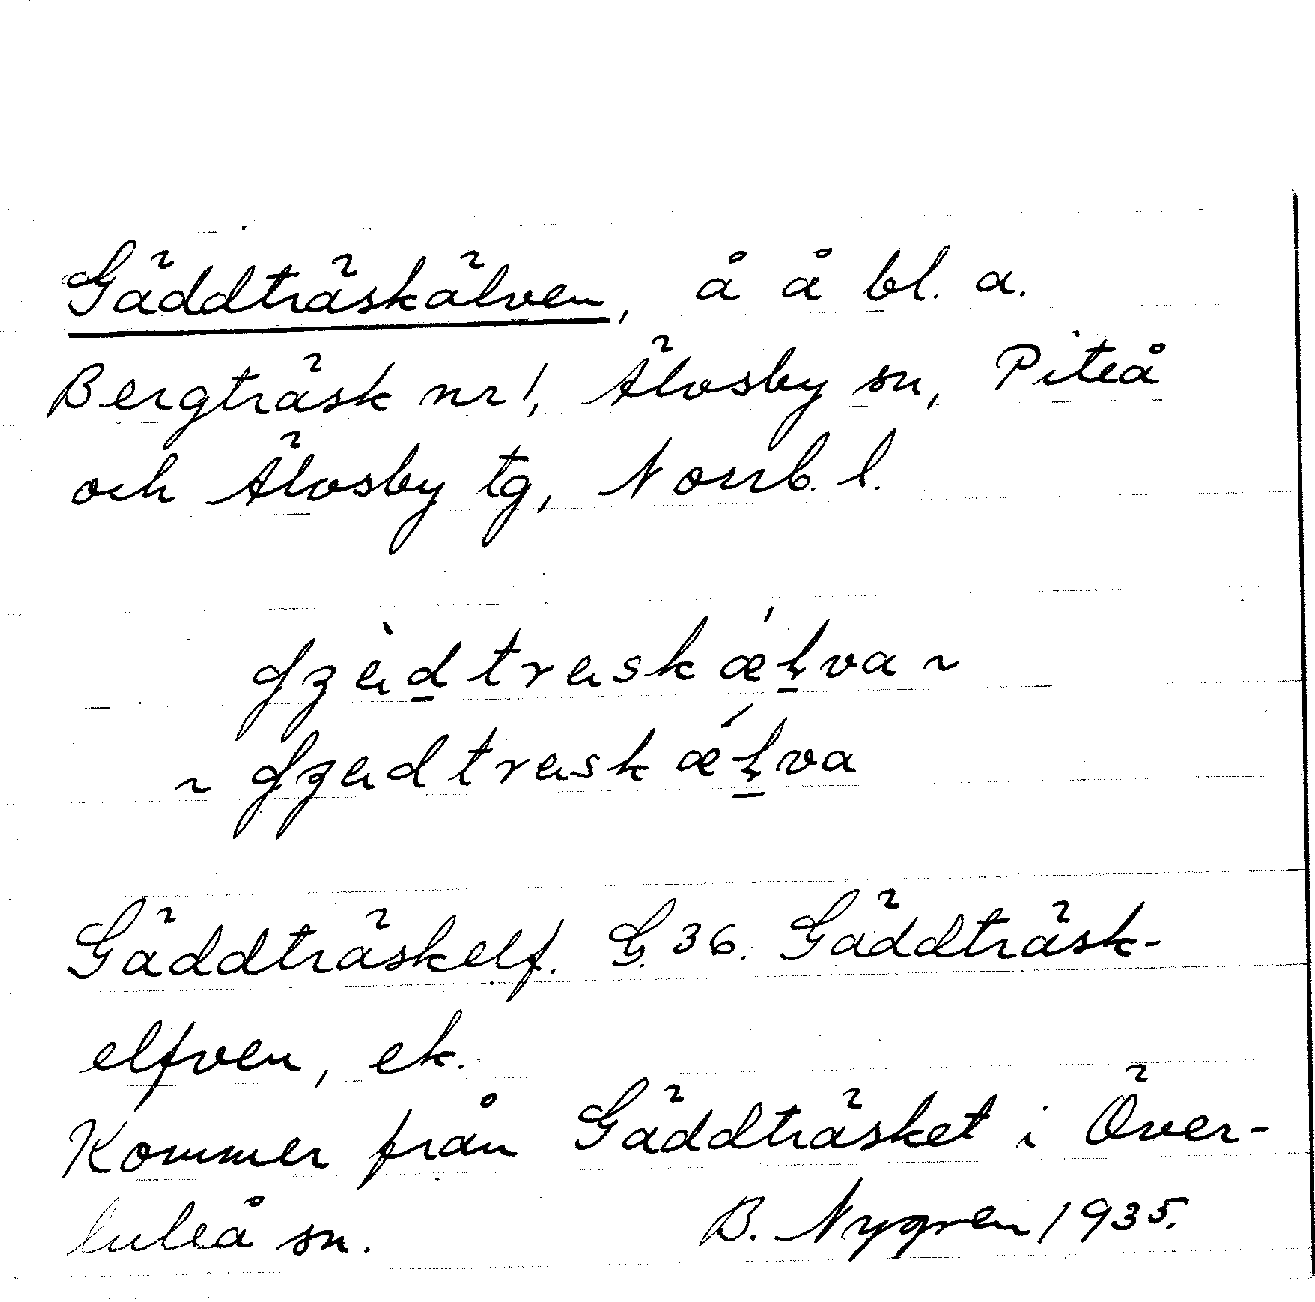 Gäddträskälven, å å bl. a.
Bergträsk nr 1, Älvsby sn, Piteå
och Älvsby tg, Norrb. l.
~
~
Gäddträskelf. G. 36. Gäddträsk-
elfven, ek.
Kommer från Gäddträsket i Över-
luleå sn. B. Nygren 1935.